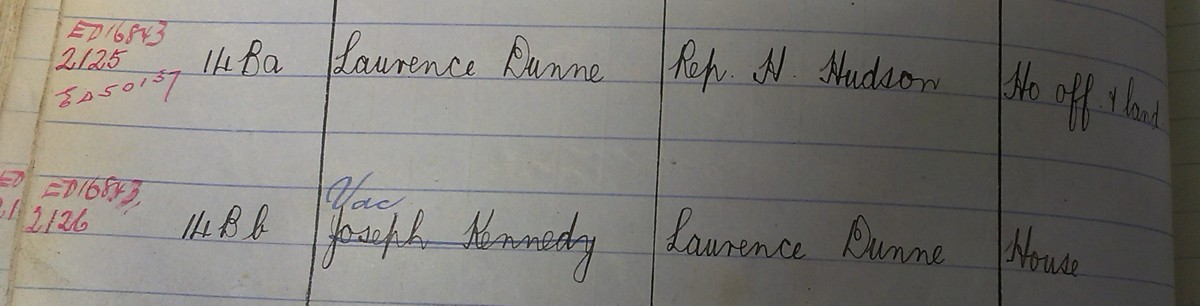 ED16843
2125 14Ba Laurence Dunne Rep. H. Hudson Ho off. & land
ED50157
ED16843,
2126 14Bb Joseph Kennedy Laurence Dunne House
Vac